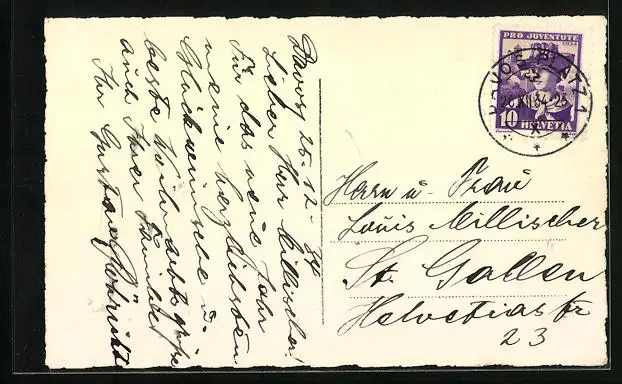 Davos, 26. 12. 34
Lieber Herr Millischer!
Für das neue Jahr
meine herzlichsten
Glückwünsche u.
beste Weihnachtsgrüsse
auch Ihrer Familie!
Ihr Gustav
Herrn u. Frau
Louis Millischer
St. Gallen
Helvetiastr
23
PRO JUVENTUTE
1934
10 HELVETIA
DAVOS PLATZ 1
26.XII.34-23